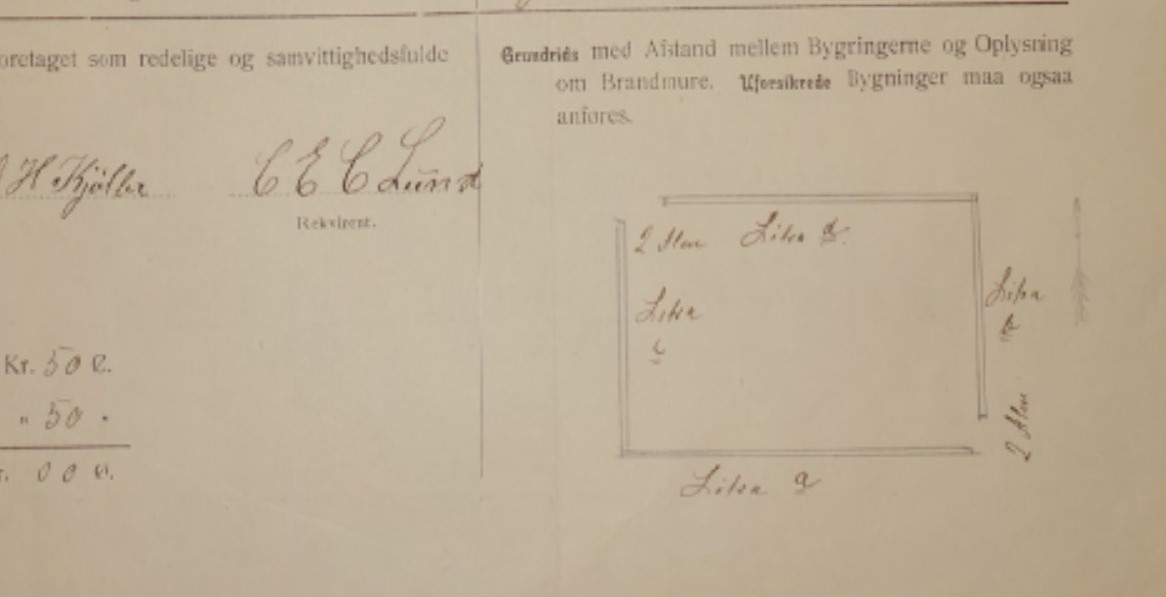 oretaget som redelige og samvittighedsfulde
H Kjöller
C E C Lund
Rekvirent.
Kr. 50 Ø.
" 50 "
r. 00 Ø.
Grundrids med Afstand mellem Bygningerne og Oplysning
om Brandmure. Uforsikrede Bygninger maa ogsaa
anføres.
2 Alen Litra d.
Litra
c
Litra
b
2 Alen
Litra a